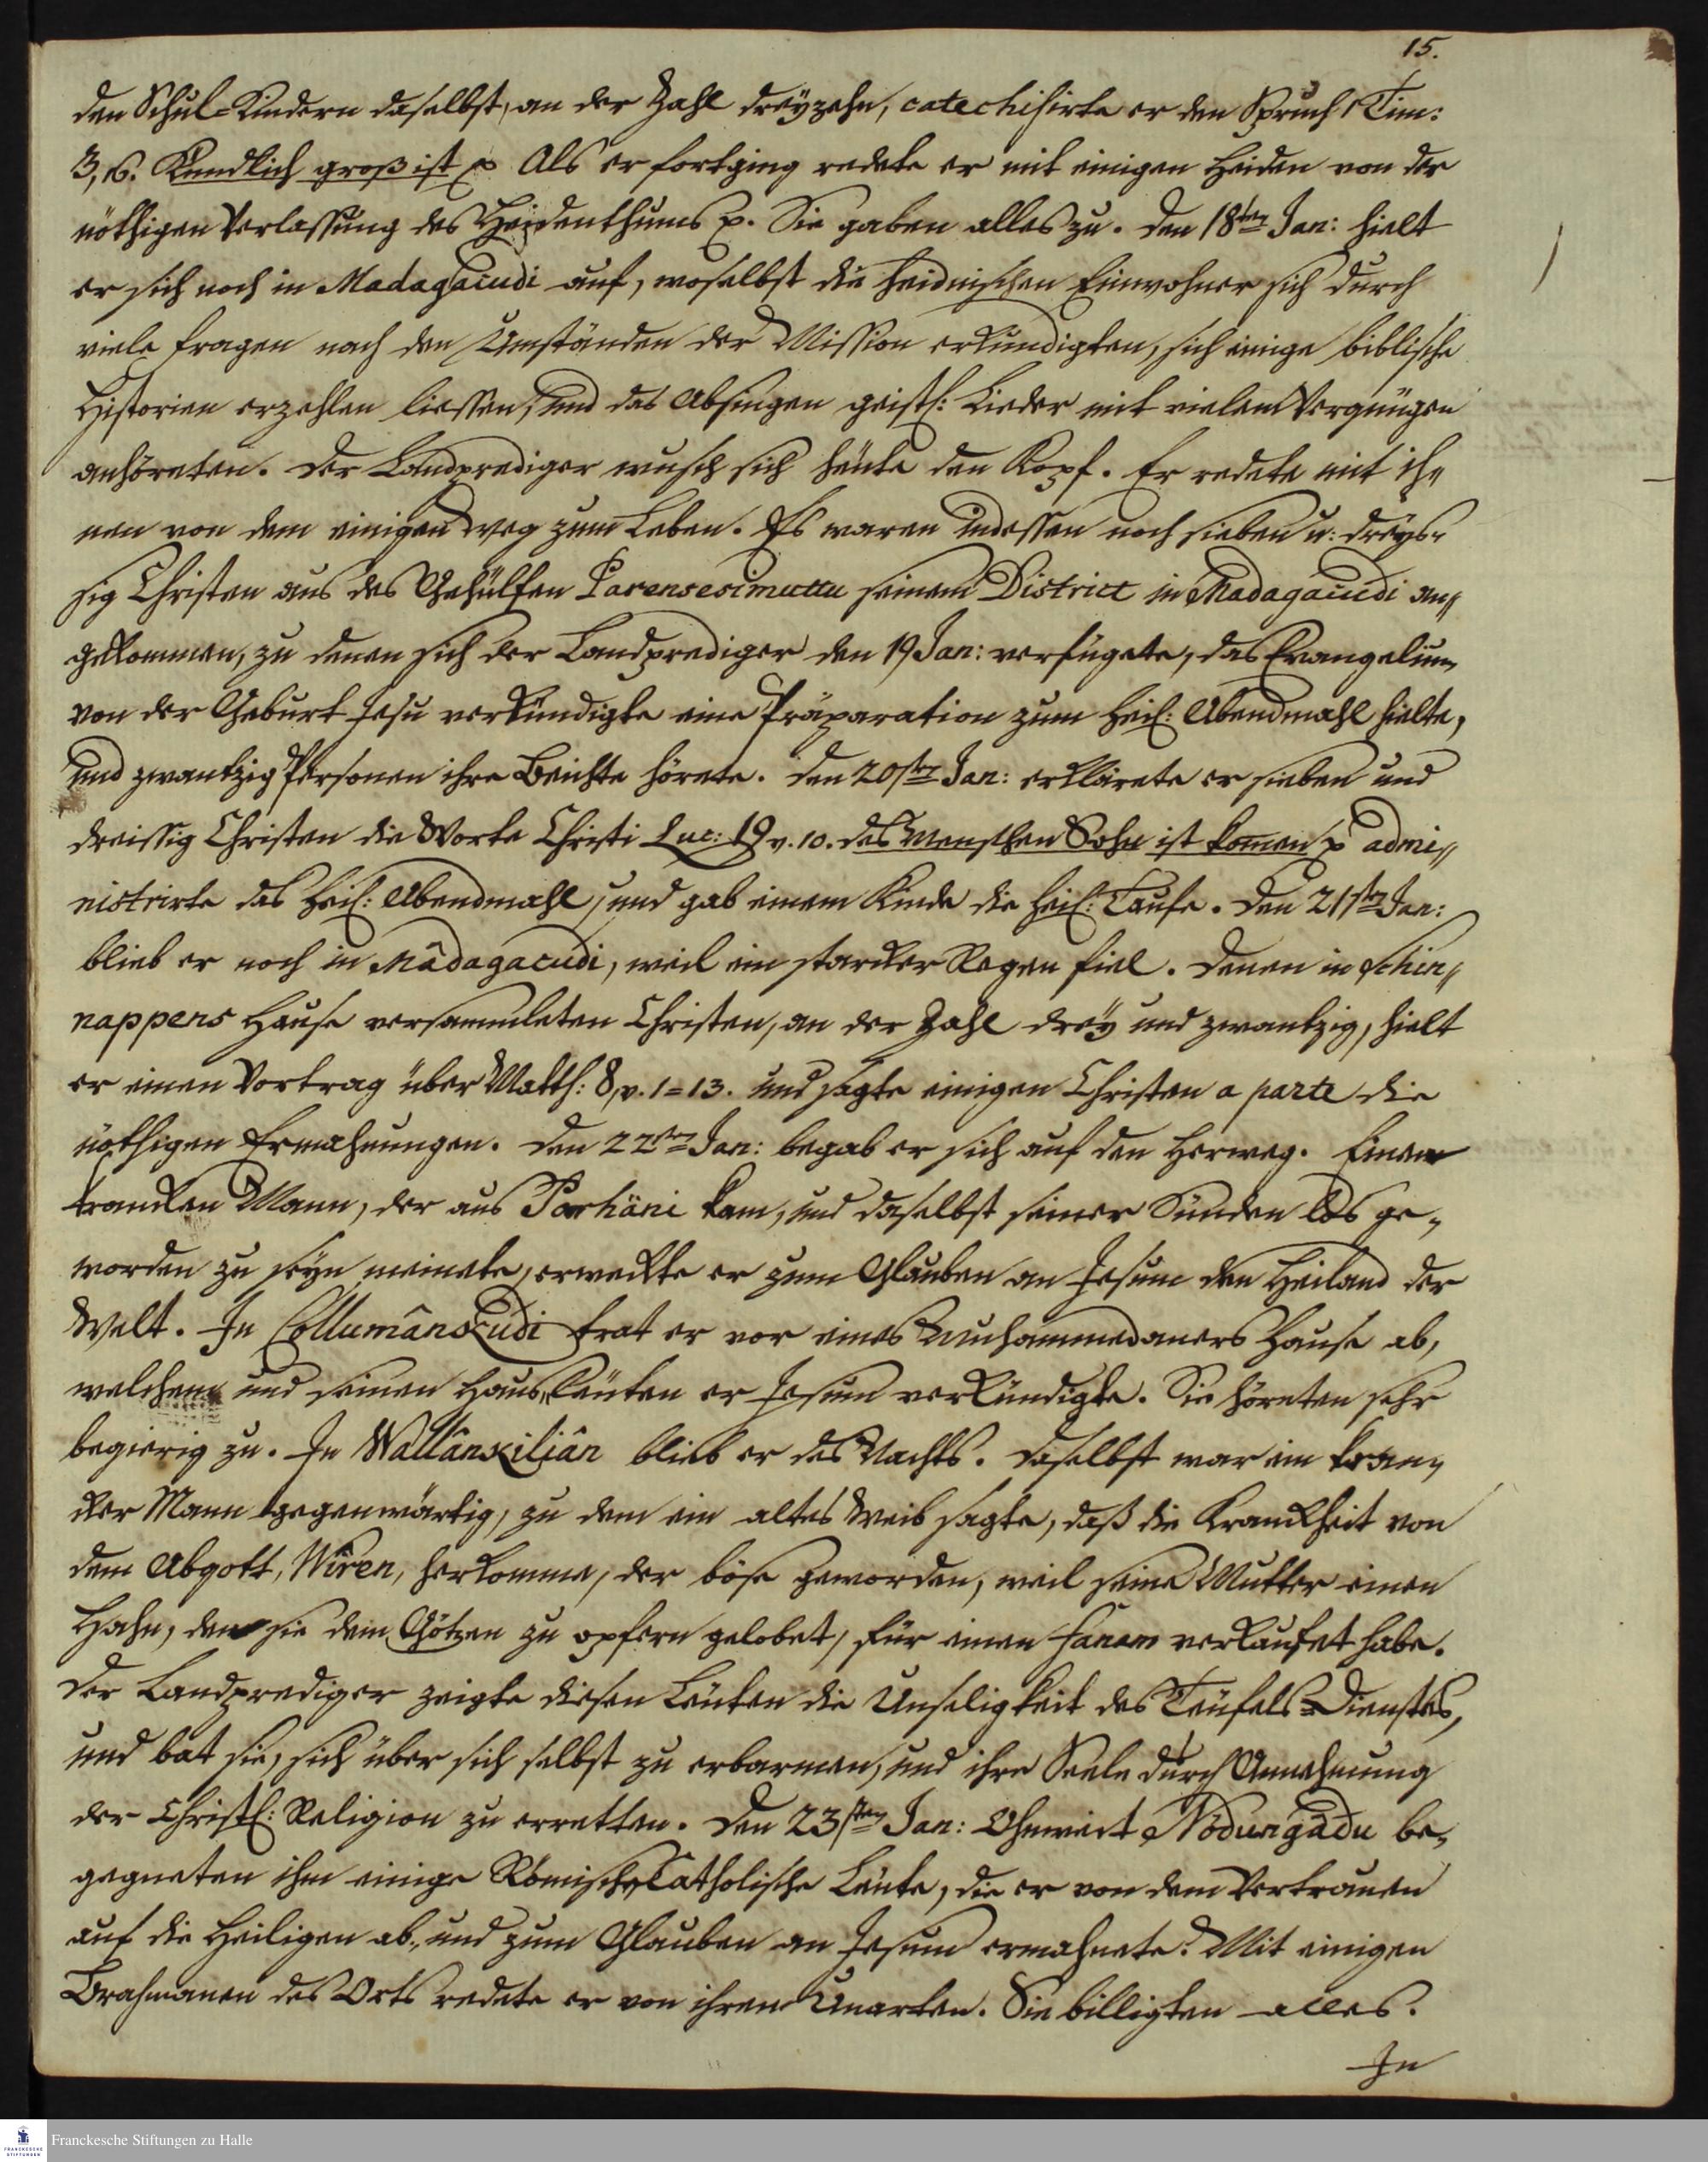 15.
den Schul-Kindern daselbst, an der Zahl dreÿzehn, catechisirte er den Spruch 1 Tim:
3, 16. Kündlich groß ist p Als er fortging redete er mit einigen Heiden von der
nöthigen Verlassung des Heidenthums p. Sie gaben alles zu. Den 18ten Jan: hielt
er sich noch in Madagacudi auf, woselbst die heidnischen Einwohner sich durch
viele Fragen nach den Umständen der Mission erkundigten, sich einige biblische
Historien erzehlen liessen, und das Absingen geistl: Lieder mit vielem Vergnügen
anhöreten. Der Landprediger wusch sich heute den Kopf. Er redete mit ih„
nen von dem einigen Weg zum Leben. Es waren indessen noch sieben u: dreÿs-
sig Christen aus des Gehülfen Parensesimuttu seinem District in Madagacudi an„
gekommen, zu denen sich der Landprediger den 19 Jan: verfügete, das Evangelium
von der Geburt Jesu verkündigte eine Präparation zum Heil: Abendmahl hielte,
und zwantzig Personen ihre Beichte hörete. Den 20sten Jan: erklärete er sieben und
dreissig Christen die Worte Christi Luc: 19 v. 10. des Menschen Sohn ist komen p admi„
nistrirte das Heil: Abendmahl, und gab einem Kinde die Heil: Taufe. Den 21sten Jan:
blieb er noch in Mâdagacudi, weil ein starcker Regen fiel. Denen in Schin„
nappens Hause versammleten Christen, an der Zahl dreÿ und zwantzig, hielt
er einen Vortrag über Matth: 8, v. 1=13. und sagte einigen Christen a parte die
nöthigen Ermahnungen. Den 22ten Jan: begab er sich auf den Herweg. Einen
krancken Mann, der aus Parhäni kam, und daselbst seiner Sünden los ge„
worden zu seÿn meinete, erweckte er zum Glauben an Jesum den Heiland der
Welt. In Collumânscudi trat er vor eines Muhammedaners Hause ab,
welchem und seinen Haus„Leuten er Jesum verkündigte. Sie höreten sehr
begierig zu. In Wallânkiliân blieb er des Nachts. Daselbst war ein kran„
cker Mann gegenwärtig, zu dem ein altes Weib sagte, daß die Kranckheit von
dem Abgott, Wiren, herkomme, der böse geworden, weil seine Mutter einen
Hahn, den sie dem Götzen zu opfern gelobet, für einen Fanam verkaufet habe.
Der Landprediger zeigte diesen Leuten die Unseligkeit des Teufels-Dienstes,
und bat sie, sich über sich selbst zu erbarmen, und ihre Seele durch Annehmung
der Christl: Religion zu erretten. Den 23sten Jan: Ohnweit Nödungâdu be„
gegneten ihm einige Römisch„Catholische Leute, die er von dem Vertrauen
auf die Heiligen ab„ und zum Glauben an Jesum ermahnete. Mit einigen
Brahmanen des Orts redete er von ihren Unarten. Sie billigten alles.
In
Franckesche Stiftungen zu Halle